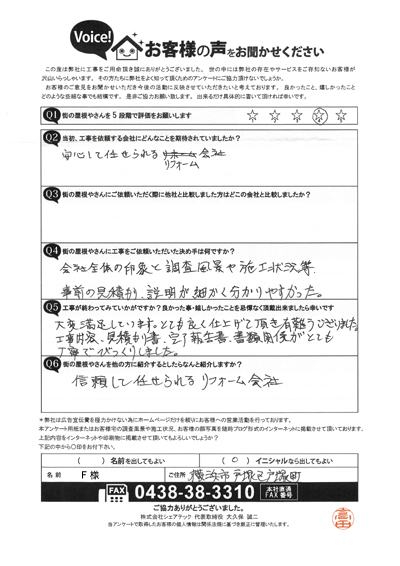 Voice!
お客様の声をお聞かせください
この度は弊社に工事をご用命頂き誠にありがとうございました。世の中には弊社の存在やサービスをご存知ないお客様が
沢山いらっしゃいます。その方たちに弊社をよく知って頂くためのアンケートにご協力頂けないでしょうか。
お客様のご意見をお聞かせいただき今後の活動に反映させていただきたいと考えております。良かったこと、嬉しかったこと
どのような些細な事でも結構です。是非ご協力お願い致します。出来るだけ具体的に書いて頂ければ幸いです。
Q1 街の屋根やさんを5段階で評価をお願いします ☆ ☆ ☆ ☆ ☆
Q2 当初、工事を依頼する会社にどんなことを期待されていましたか?
安心して任せられる 会社
リフォーム
Q3 街の屋根やさんにご依頼いただく際に他社と比較しました方はどこの会社と比較しましたか?
Q4 街の屋根やさんに工事をご依頼いただいた決め手は何ですか?
会社全体の印象と調査風景や施工状況等
事前の見積り、説明が細かく分かりやすかった。
Q5 工事が終わってみていかがですか?良かった事・嬉しかったことを忌憚なく頂戴出来ましたら幸いです
大変満足しています。とても良く仕上げて頂き有難うございました。
工事内容、見積り書、完了報告書、書類関係がとても
丁寧でびっくりしました。
Q6 街の屋根やさんを他の方に紹介するとしたらなんと紹介しますか?
信頼して任せられるリフォーム会社
※弊社は広告宣伝費を極力かけない為にホームページだけを頼りにお客様への営業活動を行っております。
本アンケート用紙またはお客様宅の調査風景や施工状況、お客様の顔写真を随時ブログ形式のインターネットに掲載させて頂いております。
上記内容をインターネットや印刷物に掲載させて頂いてもよろしいでしょうか?
下記の中から〇印をお付下さい。
( ) 名前を出してもよい ( ○ ) イニシャルなら出してもよい
名前 F 様 ご住所 横浜市戸塚区戸塚町
FAX 0438-38-3310 本社直通 FAX番号
ご協力ありがとうございました。
株式会社シェアテック 代表取締役 大久保 誠二
当アンケートで取得したお客様の個人情報は関係法規に基づき厳正に管理いたします。